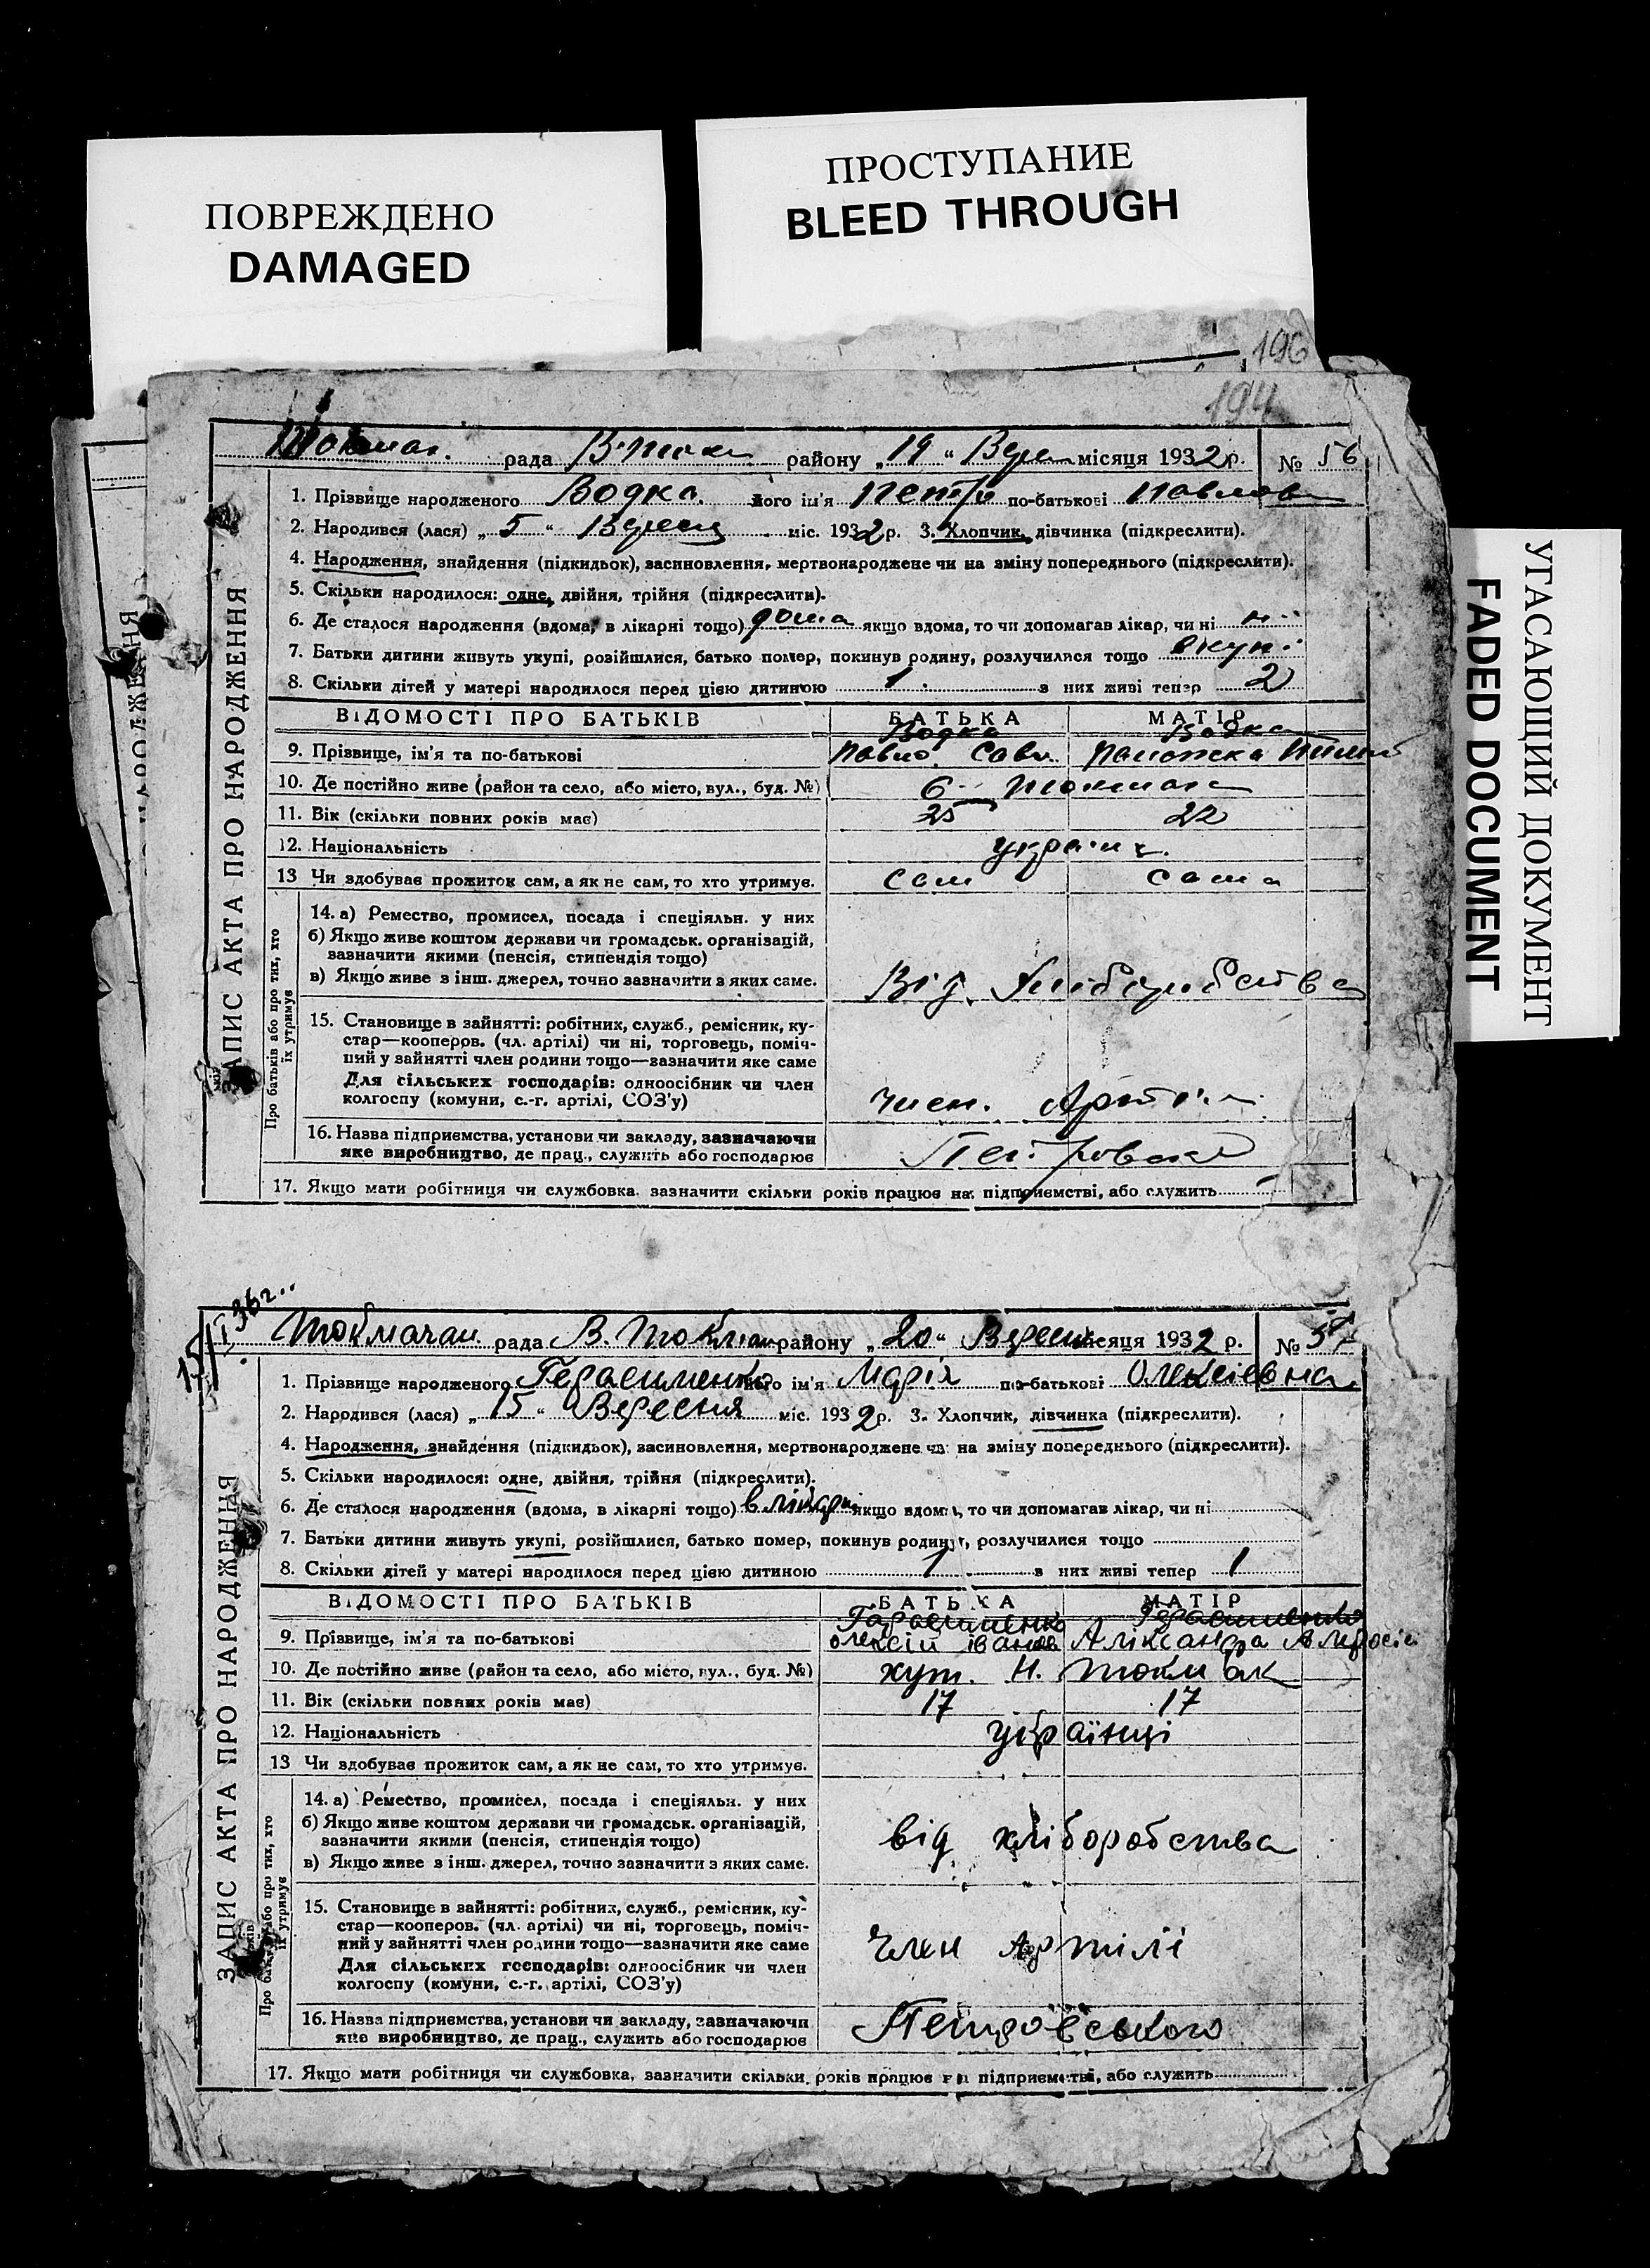 ПОВРЕЖДЕНО
DAMAGED
ПРОСТУПАНИЕ
BLEED THROUGH
УГАСАЮЩИЙ ДОКУМЕНТ
FADED DOCUMENT
196
194
рада В-Ток району „19“ Вере місяця 1932 р. № 56
ЗАПИС АКТА ПРО НАРОДЖЕННЯ
1. Прізвище народженого Водка його ім'я Петро по-батькові Павлов
2. Народився (лася) „5“ Вересн міс. 1932 р. 3. Хлопчик, дівчинка (підкреслити).
4. Народження, знайдення (підкидьок), засиновлення, мертвонароджене чи на зміну попереднього (підкреслити).
5. Скільки народилося: одне, двійня, трійня (підкреслити).
6. Де сталося народження (вдома, в лікарні тощо) дома якщо вдома, то чи допомагав лікар, чи ні ні
7. Батьки дитини живуть укупі, розійшлися, батько помер, покинув родину, розлучилися тощо вкупі
8. Скільки дітей у матері народилося перед цією дитиною 1 з них живі тепер 2
ВІДОМОСТІ ПРО БАТЬКІВ БАТЬКА МАТІР
Водка Водка
9. Прізвище, ім'я та по-батькові Павло Сав.
10. Де постійно живе (район та село, або місто, вул., буд. №) Токмак
11. Вік (скільки повних років має) 25 22
12. Національність україн.
13 Чи здобуває прожиток сам, а як не сам, то хто утримує. Сам Сама
Про батьків або про тих, хто їх утримує
14. а) Ремество, промисел, посада і спеціяльн. у них
б) Якщо живе коштом держави чи громадськ. організацій,
зазначити якими (пенсія, стипендія тощо)
в) Якщо живе з інш. джерел, точно зазначити з яких саме. Від Хліборобства
15. Становище в зайнятті: робітник, служб., ремісник, ку-
стар—кооперов. (чл. артілі) чи ні, торговець, поміч-
ний у зайнятті член родини тощо—зазначити яке саме
Для сільських господарів: одноосібник чи член
колгоспу (комуни, с.-г. артілі, СОЗ'у) Член. Артіл
16. Назва підприємства, установи чи закладу, зазначаючи
яке виробництво, де прац., служить або господарює Петровськ
17. Якщо мати робітниця чи службовка, зазначити скільки років працює на підприємстві, або служить —
Токмачан рада В. Токмак району „20“ Вересн місяця 1932 р. № 57
ЗАПИС АКТА ПРО НАРОДЖЕННЯ
1. Прізвище народженого Герасименко його ім'я Марія по-батькові Олексіевна
2. Народився (лася) „15“ Вересня міс. 1932 р. 3. Хлопчик, дівчинка (підкреслити).
4. Народження, знайдення (підкидьок), засиновлення, мертвонароджене чи на зміну попереднього (підкреслити).
5. Скільки народилося: одне, двійня, трійня (підкреслити).
6. Де сталося народження (вдома, в лікарні тощо) в лікарн якщо вдома, то чи допомагав лікар, чи ні
7. Батьки дитини живуть укупі, розійшлися, батько помер, покинув родину, розлучилися тощо
8. Скільки дітей у матері народилося перед цією дитиною 1 з них живі тепер 1
ВІДОМОСТІ ПРО БАТЬКІВ БАТЬКА МАТІР
Герасименко Герасименко
9. Прізвище, ім'я та по-батькові Олексій Іванов Аліксандра Амбросіє
10. Де постійно живе (район та село, або місто, вул., буд. №) хут. Н. Токмак
11. Вік (скільки повних років має) 17 17
12. Національність українці
13 Чи здобуває прожиток сам, а як не сам, то хто утримує.
Про батьків або про тих, хто їх утримує
14. а) Ремество, промисел, посада і спеціяльн. у них
б) Якщо живе коштом держави чи громадськ. організацій,
зазначити якими (пенсія, стипендія тощо)
в) Якщо живе з інш. джерел, точно зазначити з яких саме. від хліборобства
15. Становище в зайнятті: робітник, служб., ремісник, ку-
стар—кооперов. (чл. артілі) чи ні, торговець, поміч-
ний у зайнятті член родини тощо—зазначити яке саме
Для сільських господарів: одноосібник чи член
колгоспу (комуни, с.-г. артілі, СОЗ'у) Член Артілі
16. Назва підприємства, установи чи закладу, зазначаючи
яке виробництво, де прац., служить або господарює Петровського
17. Якщо мати робітниця чи службовка, зазначити скільки років працює на підприємстві, або служить